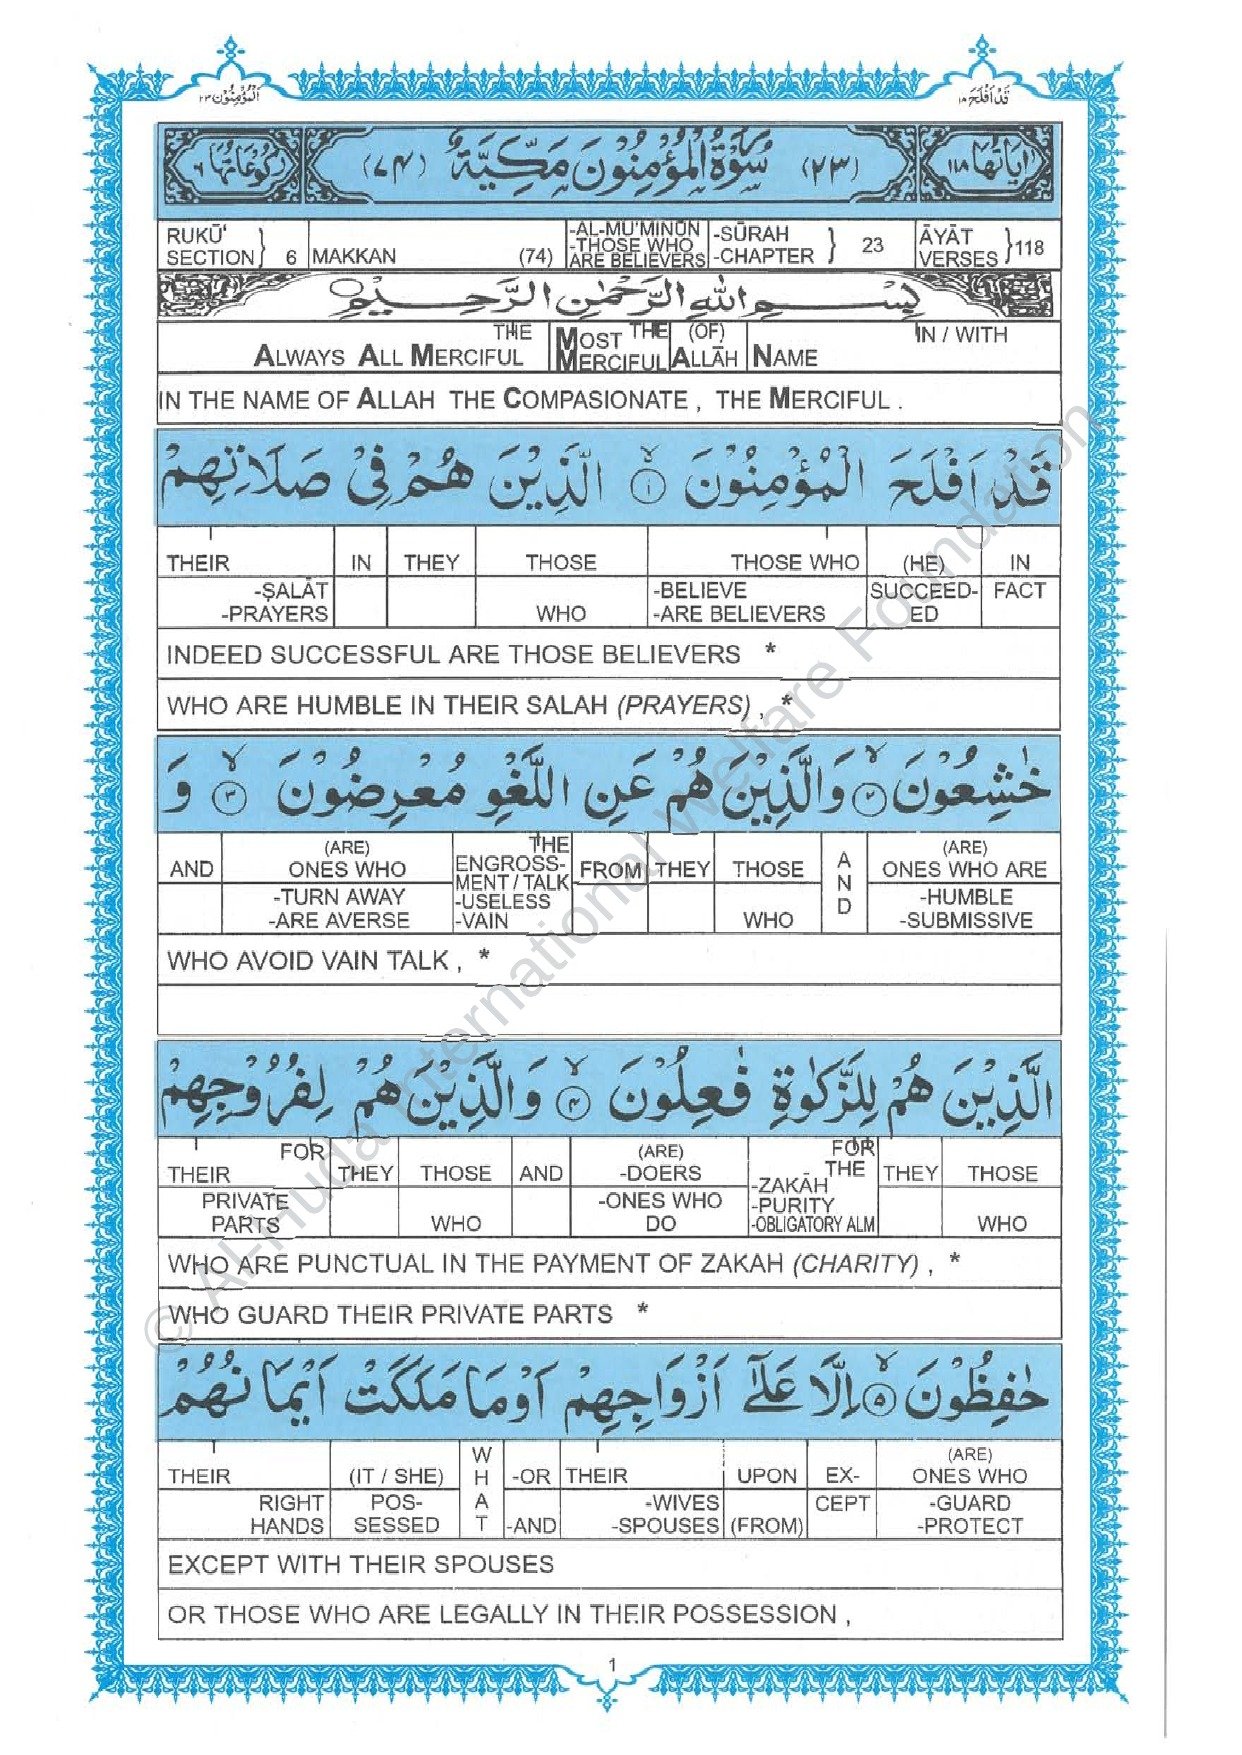 اَلْمُؤْمِنُوْن ٢٣
قَدْ اَفْلَحَ ١٨
اٰيَاتُهَا ١١٨ (٢٣) سُوْرَةُ الْمُؤْمِنُوْنَ مَكِّيَّةٌ (٧٤) رُكُوْعَاتُهَا ٦
RUKŪ‘ SECTION } 6 MAKKAN (74) -AL-MU'MINŪN -THOSE WHO ARE BELIEVERS -SŪRAH -CHAPTER } 23 ĀYĀT VERSES } 118
بِسْمِ اللهِ الرَّحْمٰنِ الرَّحِيْمِ
THE MOST THE (OF) IN / WITH
ALWAYS ALL MERCIFUL MERCIFUL ALLĀH NAME
IN THE NAME OF ALLAH THE COMPASIONATE , THE MERCIFUL .
قَدْ اَفْلَحَ الْمُؤْمِنُوْنَ ۙ﴿١﴾ الَّذِيْنَ هُمْ فِيْ صَلَاتِهِمْ
THEIR IN THEY THOSE THOSE WHO (HE) IN
-ṢALĀT -PRAYERS WHO -BELIEVE -ARE BELIEVERS SUCCEED-ED FACT
INDEED SUCCESSFUL ARE THOSE BELIEVERS *
WHO ARE HUMBLE IN THEIR SALAH (PRAYERS) , *
خٰشِعُوْنَ ۙ﴿٢﴾ وَالَّذِيْنَ هُمْ عَنِ اللَّغْوِ مُعْرِضُوْنَ ۙ﴿٣﴾ وَ
AND (ARE) ONES WHO THE ENGROSS-MENT / TALK FROM THEY THOSE AND (ARE) ONES WHO ARE
-TURN AWAY -ARE AVERSE -USELESS -VAIN WHO -HUMBLE -SUBMISSIVE
WHO AVOID VAIN TALK , *
الَّذِيْنَ هُمْ لِلزَّكٰوةِ فٰعِلُوْنَ ۙ﴿٤﴾ وَالَّذِيْنَ هُمْ لِفُرُوْجِهِمْ
FOR THEIR THEY THOSE AND (ARE) -DOERS FOR THE THEY THOSE
PRIVATE PARTS WHO -ONES WHO DO -ZAKĀH -PURITY -OBLIGATORY ALM WHO
WHO ARE PUNCTUAL IN THE PAYMENT OF ZAKAH (CHARITY) , *
WHO GUARD THEIR PRIVATE PARTS *
حٰفِظُوْنَ ۙ﴿٥﴾ اِلَّا عَلٰٓى اَزْوَاجِهِمْ اَوْ مَا مَلَكَتْ اَيْمَانُهُمْ
THEIR (IT / SHE) WHAT -OR THEIR UPON EX- (ARE) ONES WHO
RIGHT HANDS POS-SESSED -AND -WIVES -SPOUSES (FROM) CEPT -GUARD -PROTECT
EXCEPT WITH THEIR SPOUSES
OR THOSE WHO ARE LEGALLY IN THEIR POSSESSION ,
1
© Al-Huda International Welfare Foundation